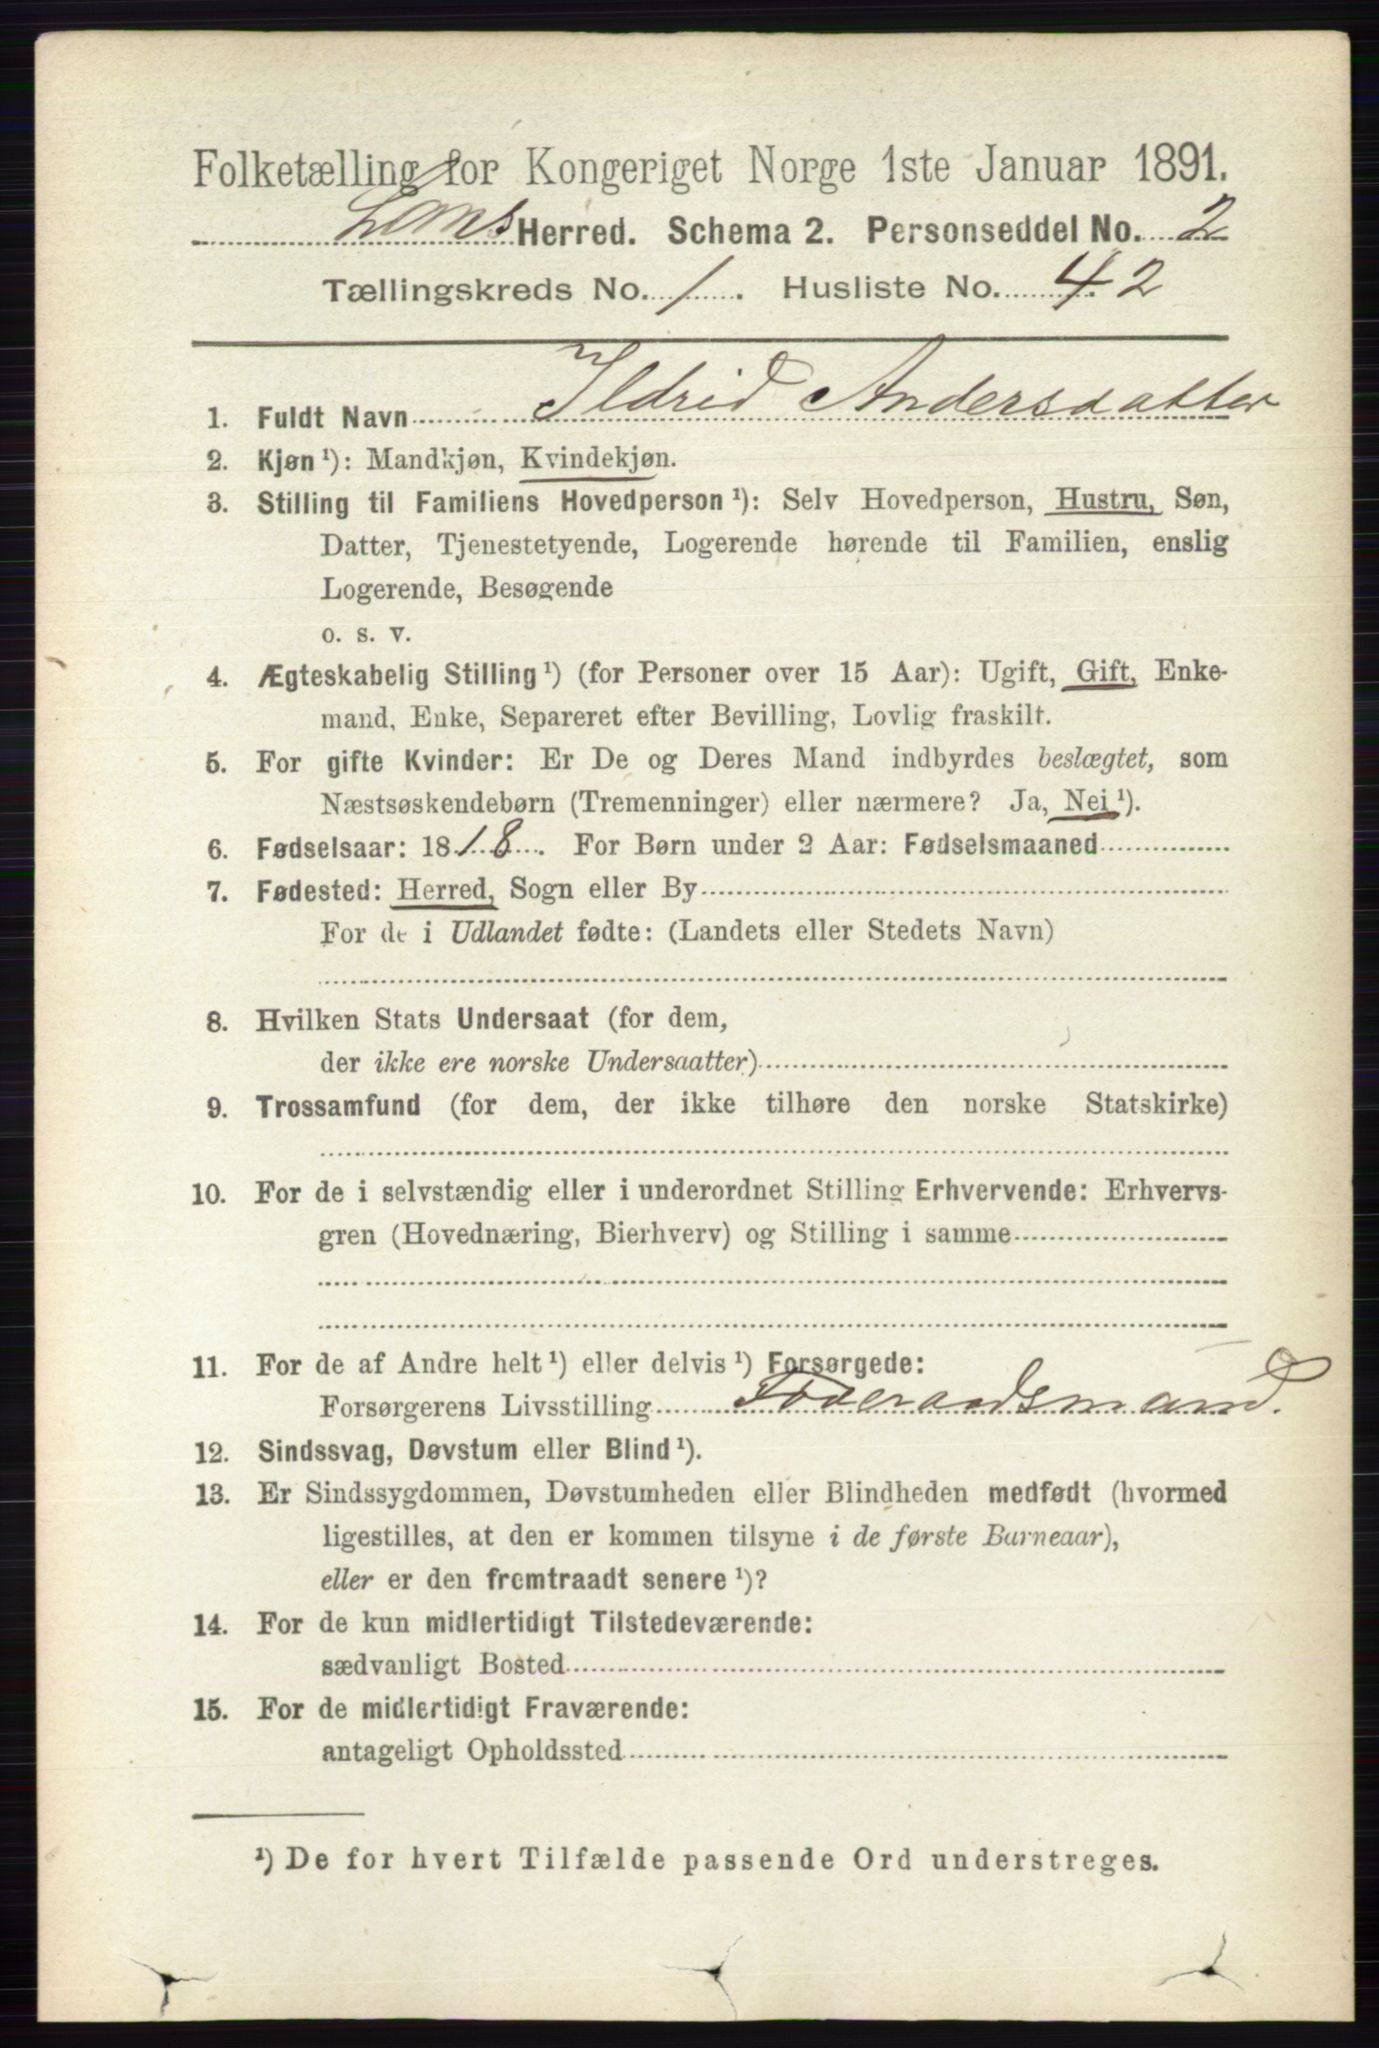 Folketælling for Kongeriget Norge 1ste Januar 1891.
Loms Herred. Schema 2. Personseddel No. 2
Tællingskreds No. 1. Husliste No. 42
1. Fuldt Navn Ildrid Andersdatter
2. Kjøn ¹): Mandkjøn, Kvindekjøn.
3. Stilling til Familiens Hovedperson ¹): Selv Hovedperson, Hustru, Søn,
Datter, Tjenestetyende, Logerende hørende til Familien, enslig
Logerende, Besøgende
o. s. v.
4. Ægteskabelig Stilling ¹) (for Personer over 15 Aar): Ugift, Gift, Enke-
mand, Enke, Separeret efter Bevilling, Lovlig fraskilt.
5. For gifte Kvinder: Er De og Deres Mand indbyrdes beslægtet, som
Næstsøskendebørn (Tremenninger) eller nærmere? Ja, Nei ¹).
6. Fødselsaar: 1818. For Børn under 2 Aar: Fødselsmaaned
7. Fødested: Herred, Sogn eller By
For de i Udlandet fødte: (Landets eller Stedets Navn)
8. Hvilken Stats Undersaat (for dem,
der ikke ere norske Undersaatter)
9. Trossamfund (for dem, der ikke tilhøre den norske Statskirke)
10. For de i selvstændig eller i underordnet Stilling Erhvervende: Erhvervs-
gren (Hovednæring, Bierhverv) og Stilling i samme
11. For de af Andre helt ¹) eller delvis ¹) Forsørgede:
Forsørgerens Livsstilling Føderaadsmand.
12. Sindssvag, Døvstum eller Blind ¹).
13. Er Sindssygdommen, Døvstumheden eller Blindheden medfødt (hvormed
ligestilles, at den er kommen tilsyne i de første Barneaar),
eller er den fremtraadt senere ¹)?
14. For de kun midlertidigt Tilstedeværende:
sædvanligt Bosted
15. For de midlertidigt Fraværende:
antageligt Opholdssted
¹) De for hvert Tilfælde passende Ord understreges.